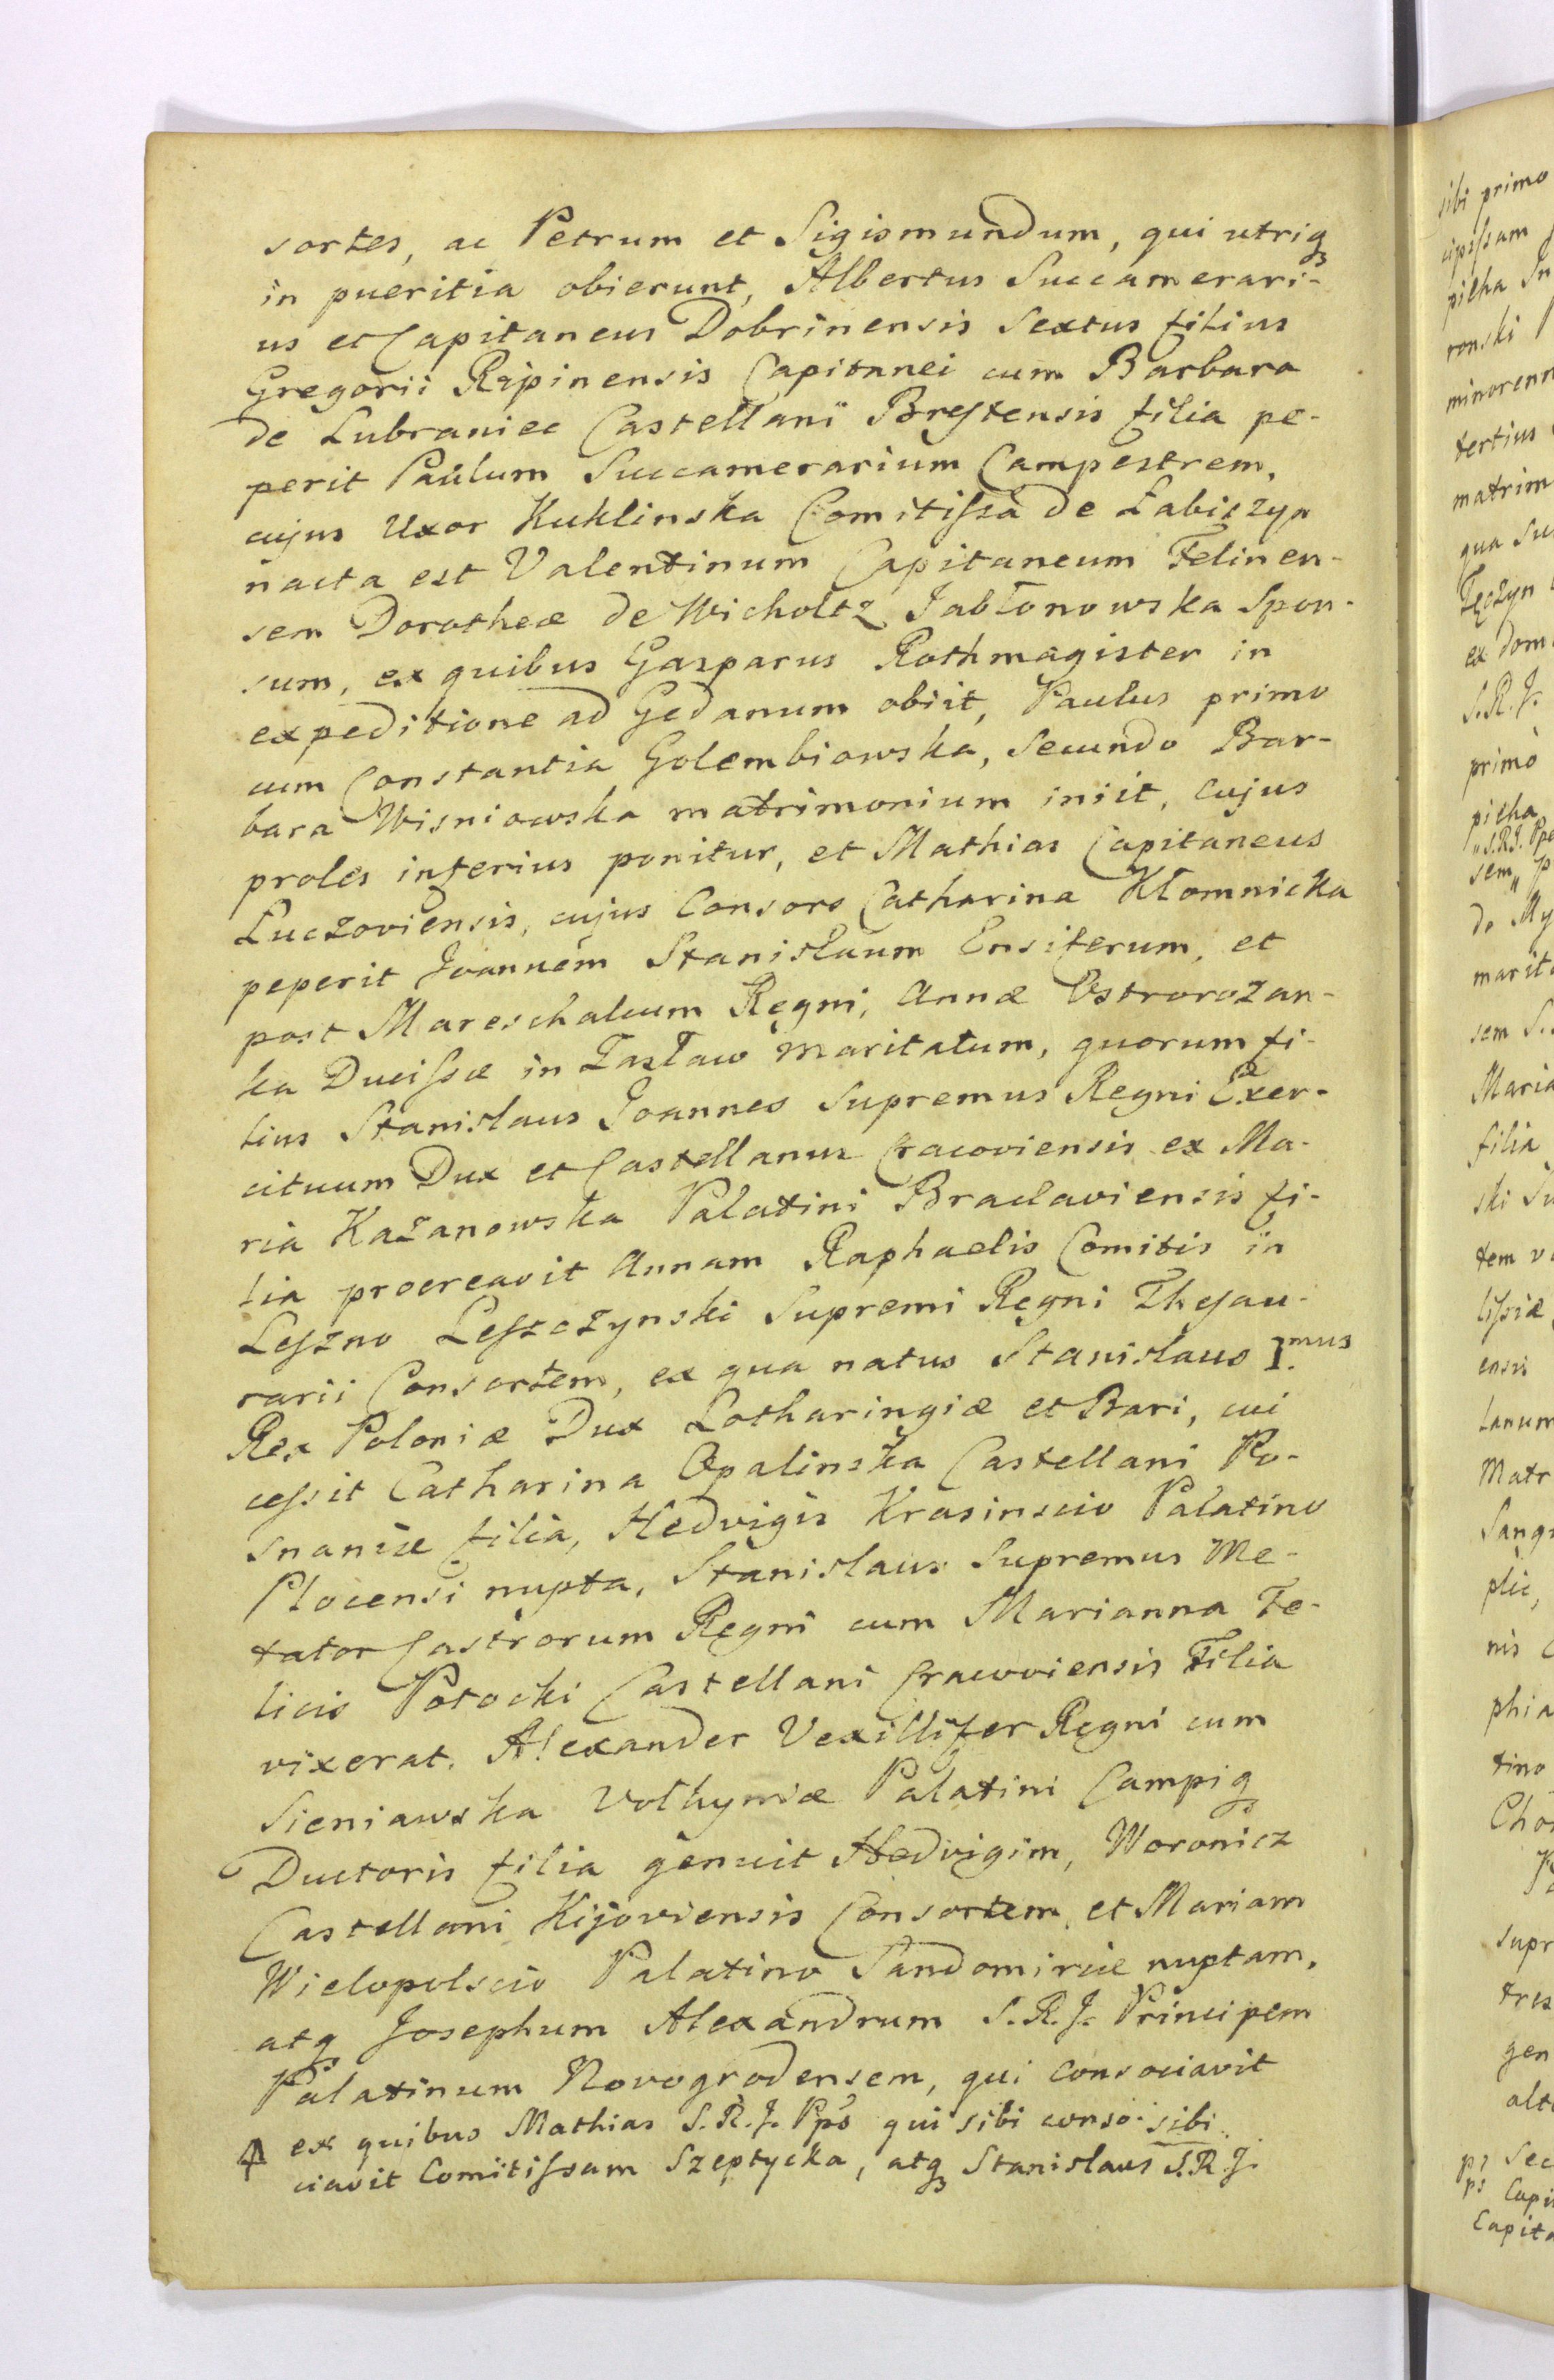 sortes, ac Petrum et Sigismundum, qui utriq
in pueritia obierunt, Albertus Succamerari-
us et Capitaneus Dobrinensis Sextus filius
Gregorii Ripinensis Capitanei cum Barbara
de Lubraniec Castellani Brestensis filia pe-
perit Paulum Succamerarium Campestrem,
cujus Uxor Kuklinska Comitissa de Łabiszyn
nacta est Valentinum Capitaneum Felinen-
sem Dorotheæ de Wicholtz Jabłonowska Spon-
sum, ex quibus Gasparus Rothmagister in
expeditione ad Gedanum obiit, Paulus primo
cum Constantia Golembiowska, Secundo Bar-
bara Wisniowska matrimonium iniit, cujus
proles inferius ponitur, et Mathias Capitaneus
Luczoviensis, cujus Consors Catharina Kłomnicka
peperit Joannem Stanisłaum Ensiferum, et
post Mareschalcum Regni, Annæ Ostrorozan-
ka Ducissæ in Zasław maritatum, quorum fi-
lius Stanislaus Joannes Supremus Regni Exer-
cituum Dux et Castellanus Cracoviensis ex Ma-
ria Kazanowska Palatini Braclaviensis fi-
lia procreavit Annam Raphaelis Comitis in
Leszno Leszczynski Supremi Regni Thesau-
rarii Consortem, ex qua natus Stanislaus I.mus
Rex Poloniæ Dux Lotharingiæ et Bari, cui
cessit Catharina Opalinska Castellani Po-
snaniæ filia, Hedvigis Krasinscio Palatino
Plocensi nupta, Stanislaus Supremus Me-
tator Castrorum Regni cum Marianna Fe-
licis Potocki Castellani Cracoviensis Filia
vixerat. Alexander Vexillifer Regni cum
Sieniawska Volhyniæ Palatini Campiq
Ductoris filia genuit Hedvigim, Woronicz
Castellani Kijoviensis Consortem, et Mariam
Wielopolscio Palatino Sandomiriæ nuptam,
atq Josephum Alexandrum S. R. J. Principem
Palatinum Novogrodensem, qui consociavit
ex quibus Mathias S. R. J. Pps qui sibi conso- sibi
ciavit Comitissam Szeptycka, atq Stanislaus S.R.J.
sibi primo
cipissam
pieha
ronski
minorenn
tertius
matrim
qua Su
Tęczyn
ex dom
S. R. J.
primo
pieha
sem
de My
marit
sem S.
Maria
filia
ski Su
tem v
lissiæ
ensis
Lanum
Matr
Sang
plic,
nis
phia
tino
Cho
supr
tres
gen
alt
Sec
Capi
Capita